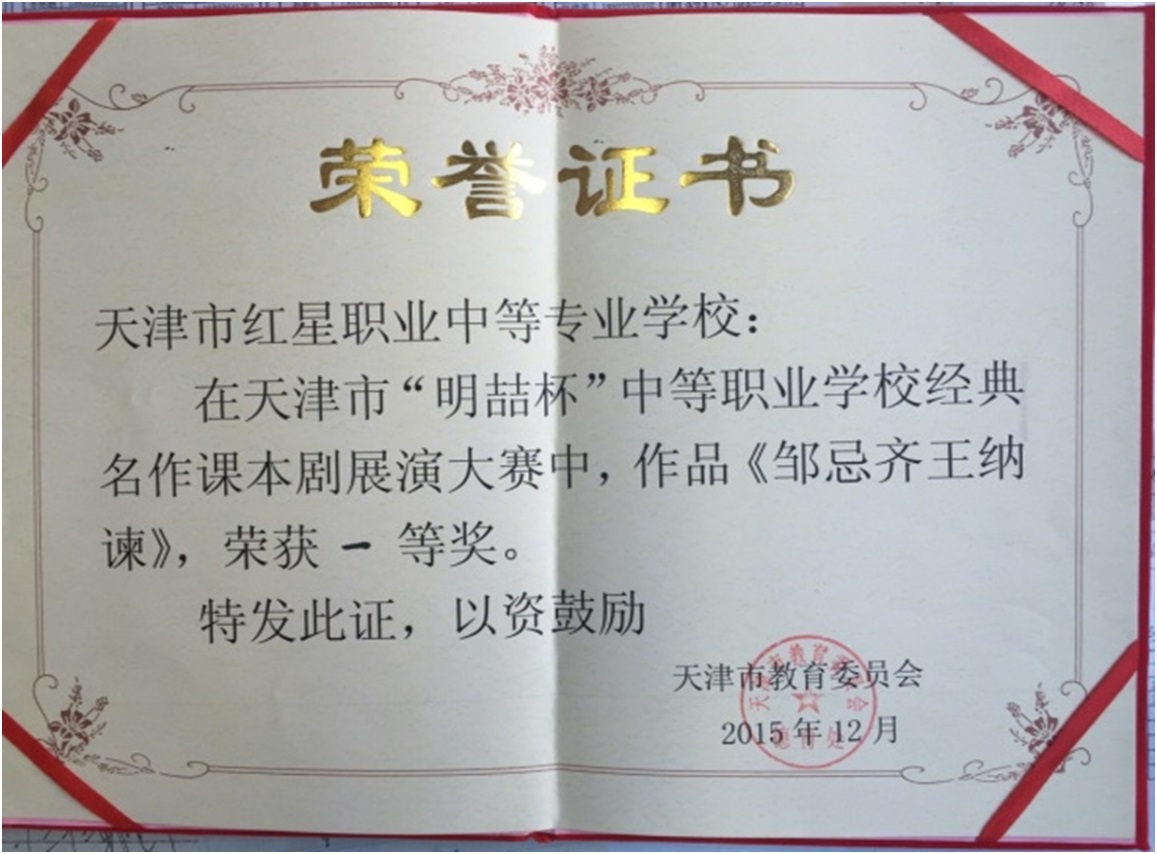 荣誉证书
天津市红星职业中等专业学校：
在天津市“明喆杯”中等职业学校经典
名作课本剧展演大赛中，作品《邹忌齐王纳
谏》，荣获 一 等奖。
特发此证，以资鼓励
天津市教育委员会
2015年12月
天津市教育委员会
德育处